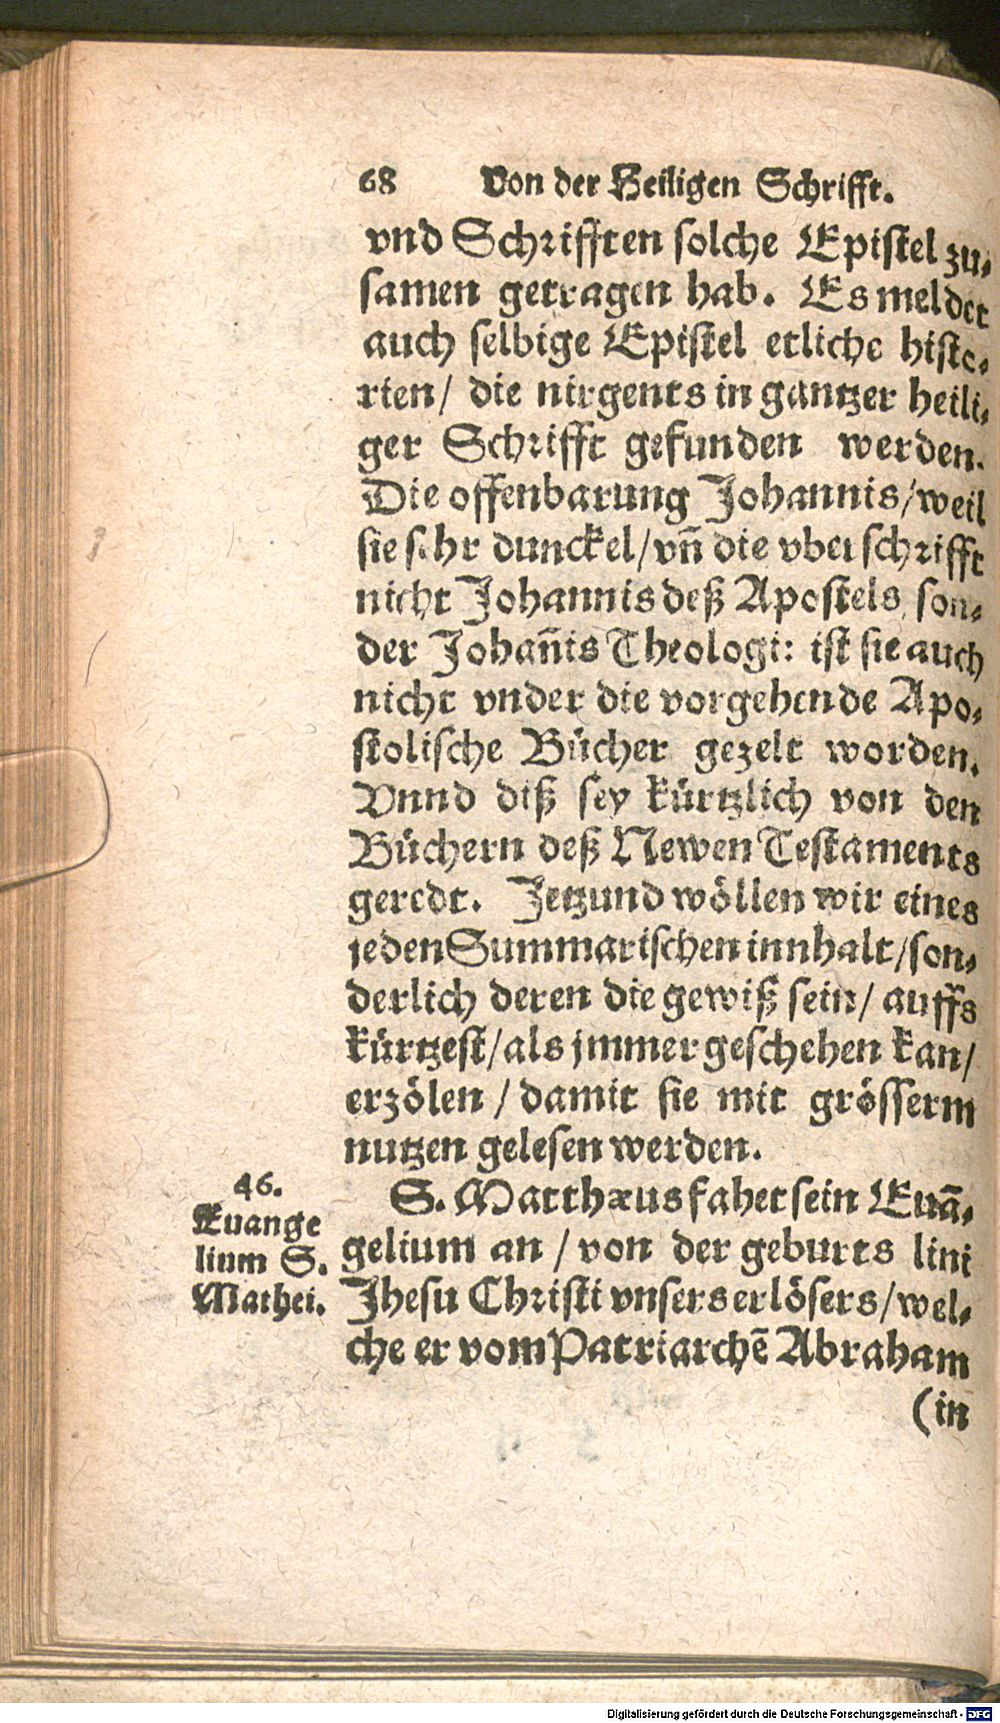 68 Von der Heiligen Schrifft.
vnd Schrifften solche Epistel zu-
samen getragen hab. Es meldet
auch selbige Epistel etliche histo-
rien/ die nirgents in gantzer heili-
ger Schrifft gefunden werden.
Die offenbarung Johannis/ weil
sie sehr dunckel/ vñ die vberschrifft
nicht Johannis deß Apostels son-
der Johañis Theologi: ist sie auch
nicht vnder die vorgehende Apo-
stolische Bücher gezelt worden.
Vnnd diß sey kürtzlich von den
Büchern deß Newen Testaments
geredt. Jetzund wöllen wir eines
jeden Summarischen innhalt/ son-
derlich deren die gewiß sein/ auffs
kürtzest/ als jmmer geschehen kan/
erzölen / damit sie mit grösserm
nutzen gelesen werden.
46.
Euange
lium S.
Mathei.
S. Matthæus fahet sein Euã-
gelium an / von der geburts lini
Jhesu Christi vnsers erlösers/ wel-
che er vom Patriarchẽ Abraham
(in
Digitalisierung gefördert durch die Deutsche Forschungsgemeinschaft - DFG